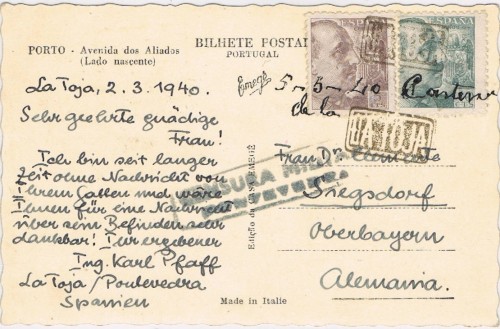 PORTO - Avenida dos Aliados
(Lado nascente)
BILHETE POSTAL
PORTUGAL
ESPAÑA
ESPAÑA
La Toja, 2.3.1940.
5-3-40
de la
Sehr geehrte gnädige
Frau!
Ich bin seit langer
Zeit ohne Nachricht von
Ihrem Gatten und wäre
Ihnen für eine Nachricht
über sein Befinden sehr
dankbar! Ihr ergebener
Ing. Karl Pfaff
La Toja / Pontevedra
Spanien
LA TOJA
CENSURA MILITAR
PONTEVEDRA
Frau Dr.
Siegsdorf
Oberbayern
Alemania.
Edição da CASA EMEGÊ
Made in Italie